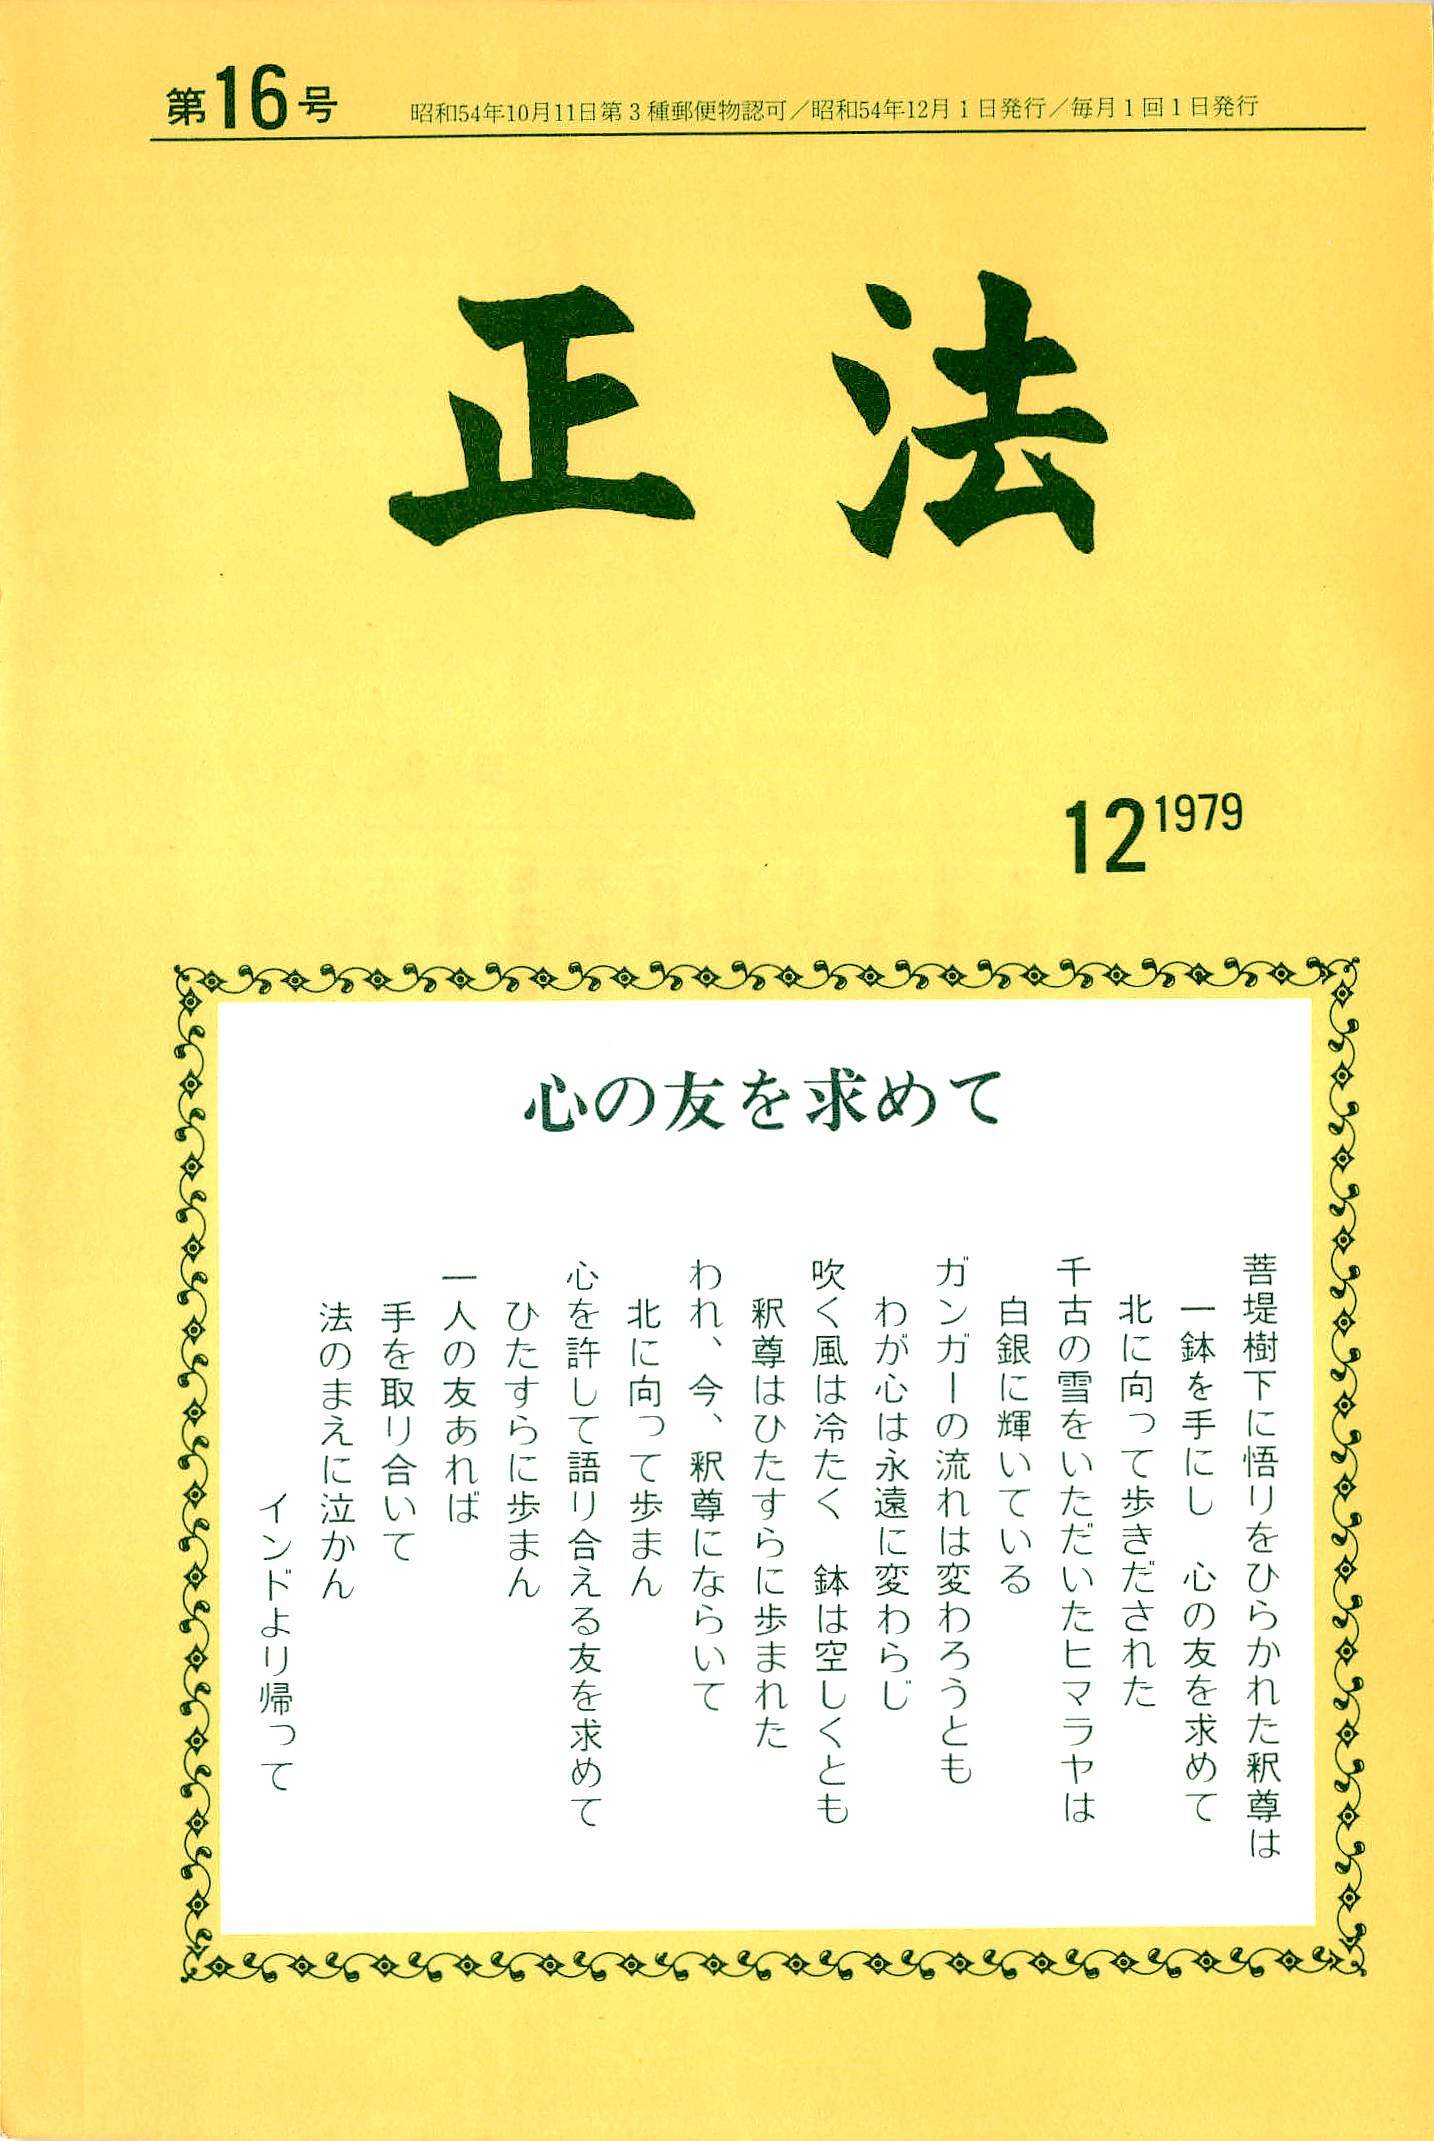 第16号
昭和54年10月11日第3種郵便物認可／昭和54年12月1日発行／毎月1回1日発行
正法
12 1979
心の友を求めて
菩提樹下に悟りをひらかれた釈尊は
一鉢を手にし　心の友を求めて
北に向って歩きだされた
千古の雪をいただいたヒマラヤは
白銀に輝いている
ガンガーの流れは変わろうとも
わが心は永遠に変わらじ
吹く風は冷たく　鉢は空しくとも
釈尊はひたすらに歩まれた
われ、今、釈尊にならいて
北に向って歩まん
心を許して語り合える友を求めて
ひたすらに歩まん
一人の友あれば
手を取り合いて
法のまえに泣かん
インドより帰って